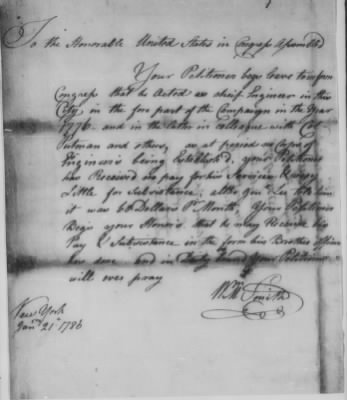 To the Honorable United States in Congress Assembled
Your Petitioner begs leave to inform
Congress that he Acted as cheif Engineer in this
City in the fore part of the Campaign in the Year
1776 and in the latter in colleague with Col
Putman and others, as at period no Corps of
Engineers being Established, your Petitioner
has Received no pay for his Services
Little for Subsistance, altho Gen Lee told him
it was 60 Dollars Pr Month, Your Petitioner
Begs your Honors that he may Receive his
Pay & Subsistance in the form his Brother
have done and in Duty bound your Petitioner
will ever pray
Wm Smith
New York
Jany 21st 1786